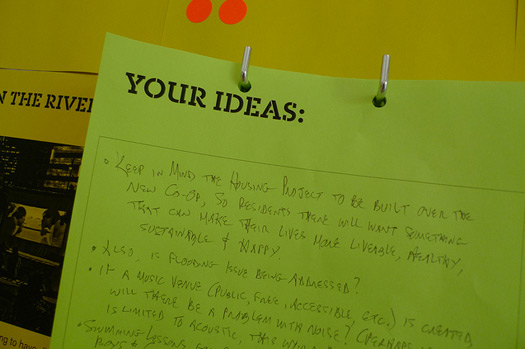 N THE RIVER
YOUR IDEAS:
• KEEP IN MIND THE HOUSING PROJECT TO BE BUILT OVER THE
NEW CO-OP, SO RESIDENTS THERE WILL WANT SOMETHING
THAT CAN MAKE THEIR LIVES MORE LIVEABLE, HEALTHY,
SUSTAINABLE & HAPPY.
• ALSO, IS FLOODING ISSUE BEING ADDRESSED?
• IF A MUSIC VENUE (PUBLIC, FREE, ACCESSIBLE, ETC.) IS CREATED,
WILL THERE BE A PROBLEM WITH NOISE? (PERHAPS
IS LIMITED TO ACOUSTIC, THIS
• SWIMMING LESSONS
ng to have